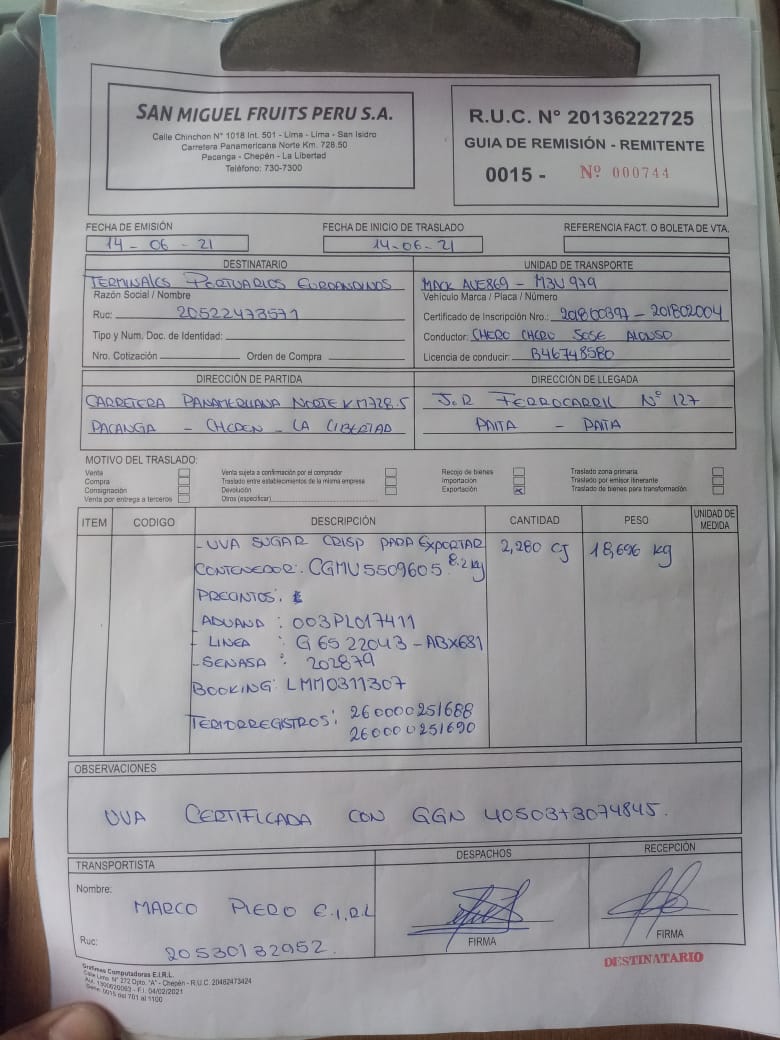 SAN MIGUEL FRUITS PERU S.A.
Calle Chinchon N° 1018 Int. 501 - Lima - Lima - San Isidro
Carretera Panamericana Norte Km. 728.50
Pacanga - Chepén - La Libertad
Teléfono: 730-7300
R.U.C. N° 20136222725
GUIA DE REMISIÓN - REMITENTE
0015 - Nº 000744
FECHA DE EMISIÓN
14 - 06 - 21
FECHA DE INICIO DE TRASLADO
14-06-21
REFERENCIA FACT. O BOLETA DE VTA.
DESTINATARIO
TERMINALES PORTUARIOS EUROANDINOS
Razón Social / Nombre
Ruc: 20522473571
Tipo y Num. Doc. de Identidad:
Nro. Cotización Orden de Compra
UNIDAD DE TRANSPORTE
MACK AVE869 - M3U 979
Vehículo Marca / Placa / Número
Certificado de Inscripción Nro.: 201800397 - 201802004
Conductor: CHERO CHERO JOSE ALONSO
Licencia de conducir: B46748580
DIRECCIÓN DE PARTIDA
CARRETERA PANAMERICANA NORTE KM728.5
PACANGA - CHEPEN - LA LIBERTAD
DIRECCIÓN DE LLEGADA
J.R FERROCARRIL N° 127
PAITA - PAITA
MOTIVO DEL TRASLADO:
Venta
Compra
Consignación
Venta por entrega a terceros
Venta sujeta a confirmación por el comprador
Traslado entre establecimientos de la misma empresa
Devolución
Otros (especificar)
Recojo de bienes
Importación
Exportación X
Traslado zona primaria
Traslado por emisor itinerante
Traslado de bienes para transformación
ITEM CODIGO DESCRIPCIÓN CANTIDAD PESO UNIDAD DE MEDIDA
- UVA SUGAR CRISP PARA EXPORTAR 2,280 CJ 18,696 kg
8.2 kg
CONTENEDOR: CGMU5509605
PRECINTOS:
ADUANA : 003PL017411
- LINEA : G6522043 - ABX681
- SENASA : 202879
BOOKING: LMM0311307
TERMORREGISTROS: 260000251688
260000251690
OBSERVACIONES
UVA CERTIFICADA CON GGN 4050373074845.
TRANSPORTISTA
Nombre:
MARCO PIERO E.I.R.L
Ruc: 20530132952.
DESPACHOS
FIRMA
RECEPCIÓN
FIRMA
DESTINATARIO
Grafimes Computadoras E.I.R.L.
Calle Lima N° 272 Dpto. "A" - Chepén - R.U.C. 20482473424
F.I. 04/02/2021
Serie: 0015 del 701 al 1100